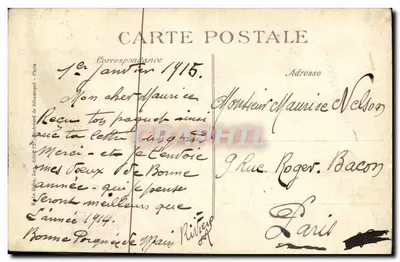 CARTE POSTALE
Correspondance
Adresse
1er Janvier 1915.
Mon cher Maurice
Reçu ton paquet ainsi
que ta lettre un grand
Merci - et je t'envoie
mes vœux de Bonne
année - qui je pense
seront meilleurs que
l'année 1914.
Bonne Poignée de Main
Monsieur Maurice Nelson
9 Rue Roger. Bacon
Paris